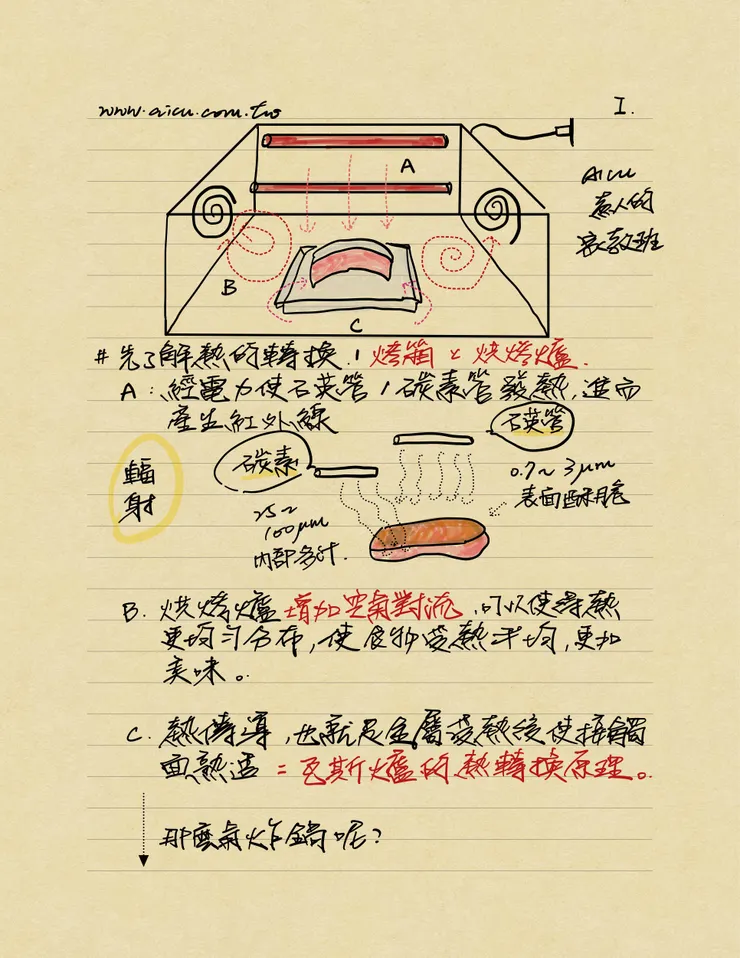 www.aicu.com.tw
I.
Aicu
惹人的
家教班
A
B
C
# 先了解熱的轉換！烤箱 & 烘烤爐.
A：經電力使石英管/碳素管發熱,進而
產生紅外線
輻
射
碳素
石英管
25~
100μm
內部多汁.
0.7~3μm
表面酥脆
B. 烘烤爐增加空氣對流,可以使得熱
更均勻分布,使食物受熱平均,更加
美味。
C. 熱傳導,也就是金屬受熱後使接觸
面熟透 = 瓦斯爐的熱轉換原理。
那麼氣炸鍋呢？